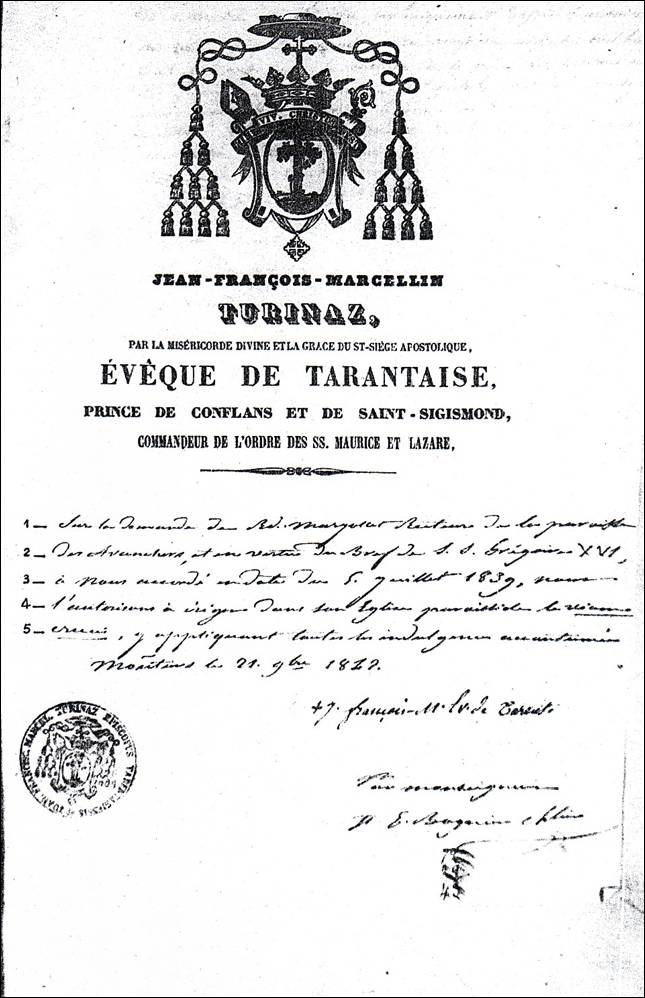 VIV. CHRIST
JEAN-FRANÇOIS-MARCELLIN
TURINAZ,
PAR LA MISÉRICORDE DIVINE ET LA GRACE DU ST-SIÈGE APOSTOLIQUE,
ÉVÊQUE DE TARANTAISE,
PRINCE DE CONFLANS ET DE SAINT-SIGISMOND,
COMMANDEUR DE L'ORDRE DES SS. MAURICE ET LAZARE,
1 _ Sur la demande de Rd. Recteur de la paroisse
2 _ des Avanchers, et en vertu du Bref de S. S. Grégoire XVI,
3 _ à nous accordé en date du 5. juillet 1839, nous
4 _ l'autorisons à ériger dans son Eglise paroissiale la viam
5 _ crucis, y appliquant toutes les indulgences accoutumées
Moûtiers le 21. 9bre 1842.
+ J. françois-M. Ev. de Tarent
Par monseigneur
JOAN. FRANC. MARCEL. TURINAZ EPISCOPUS